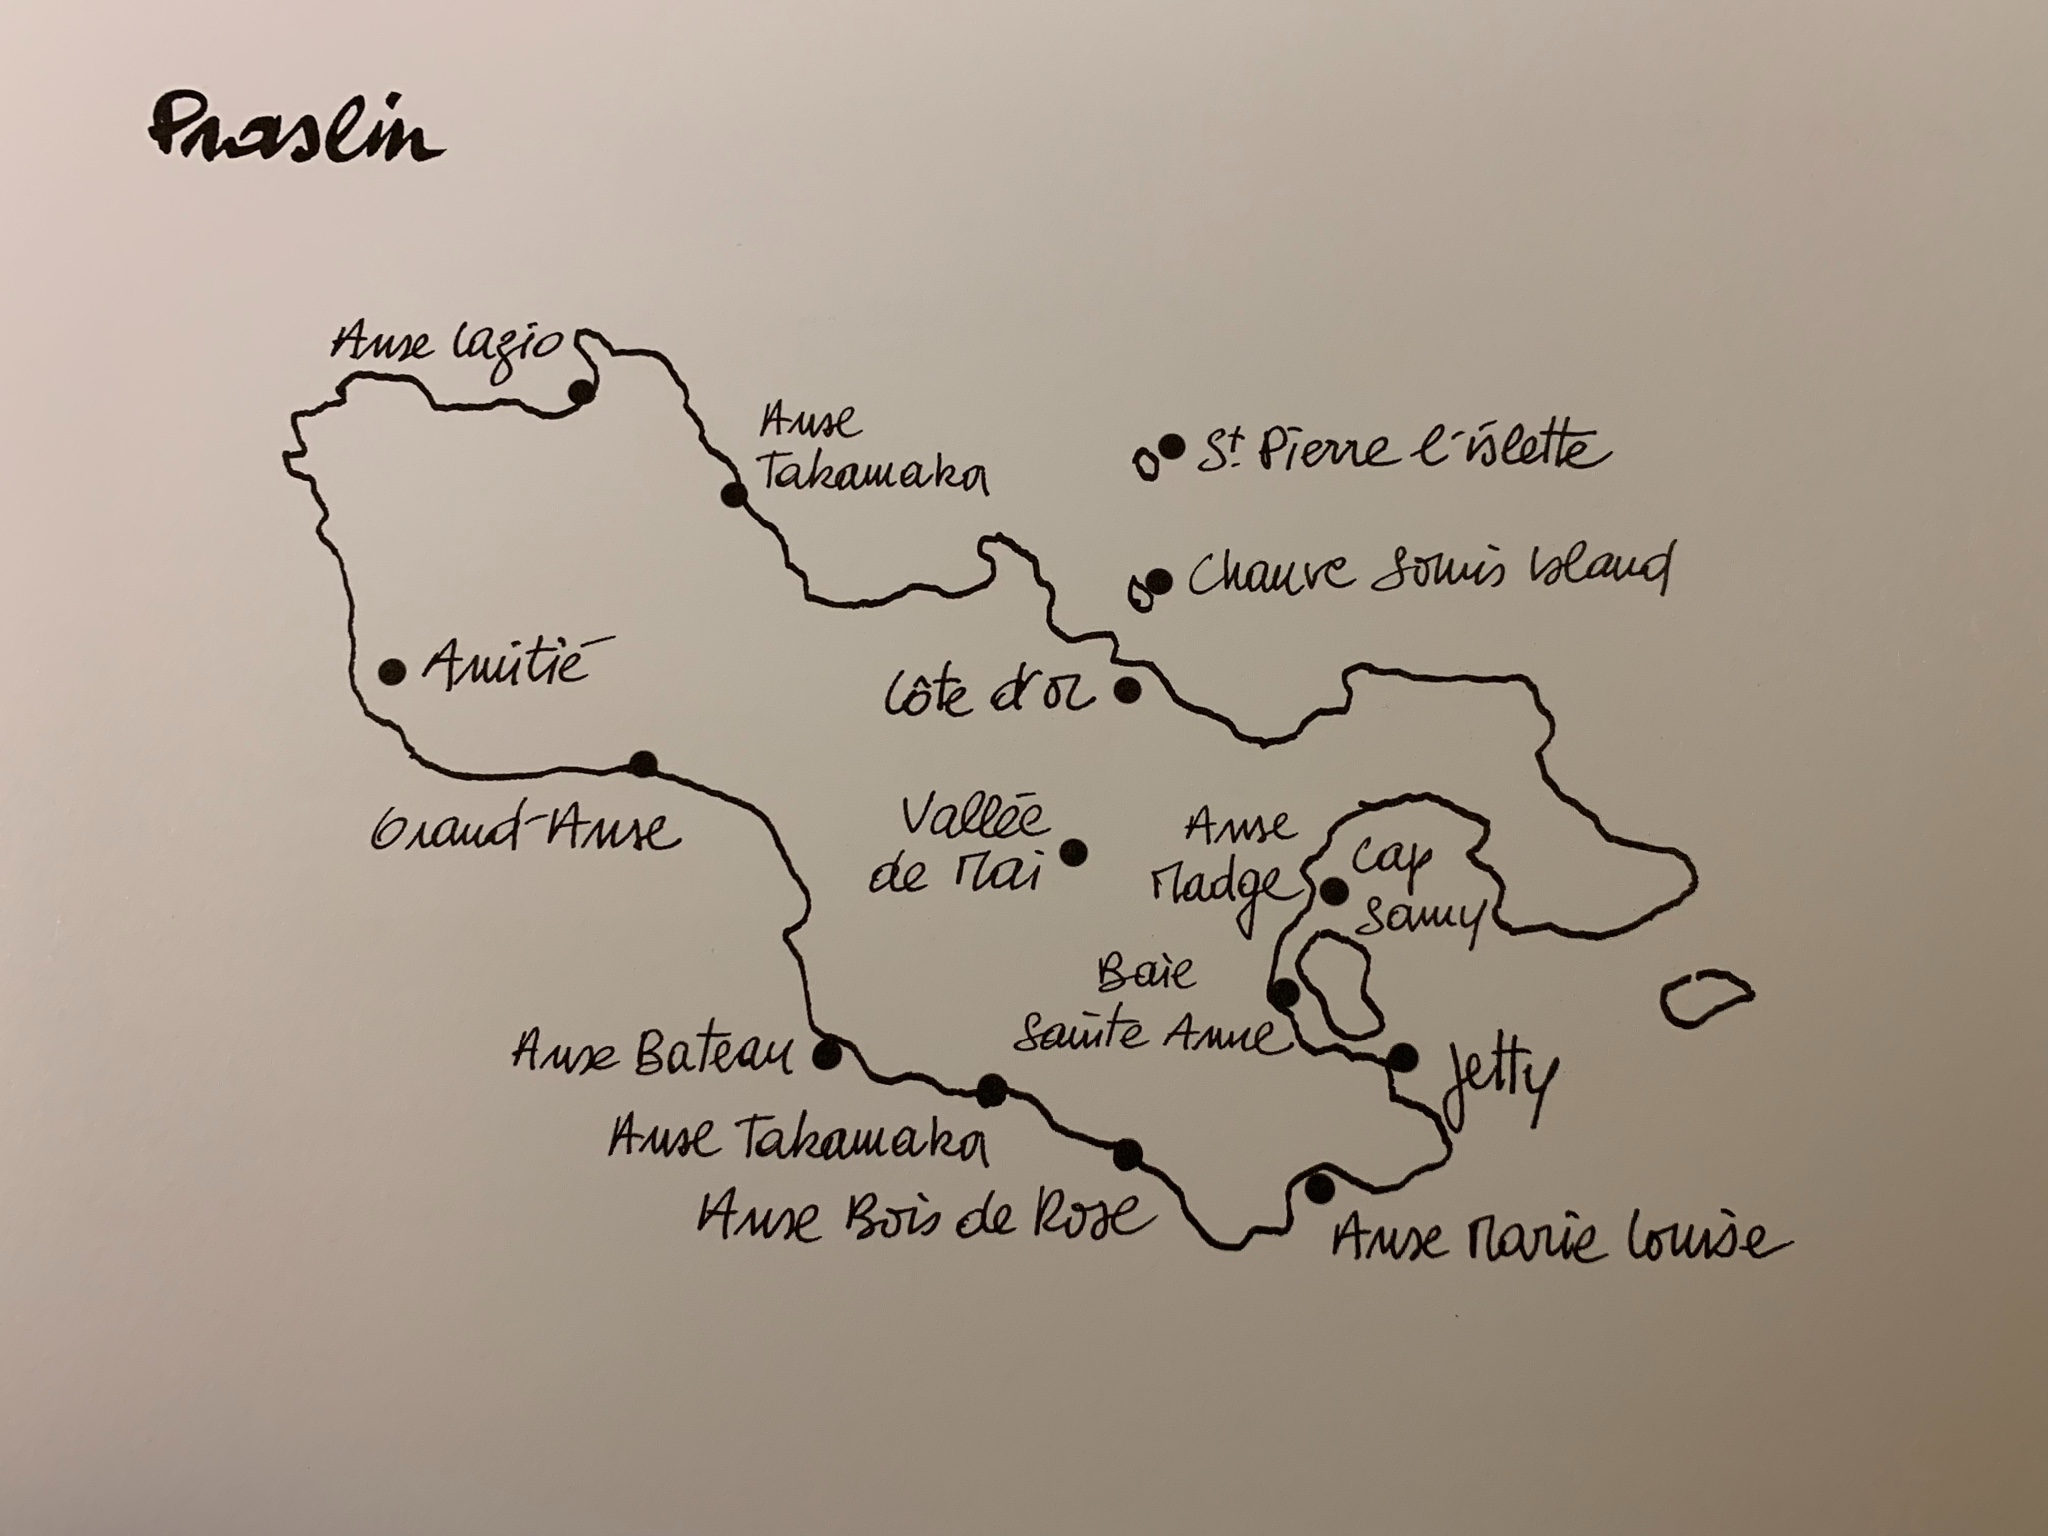 Praslin
Anse Lazio
Anse
Takamaka
St. Pierre l'islette
Chauve Souris Island
Amitié
Côte d'or
Grand-Anse
Vallée
de Mai
Anse
Madge
Cap
Samy
Baie
Sainte Anne
Anse Bateau
Jetty
Anse Takamaka
Anse Bois de Rose
Anse Marie Louise